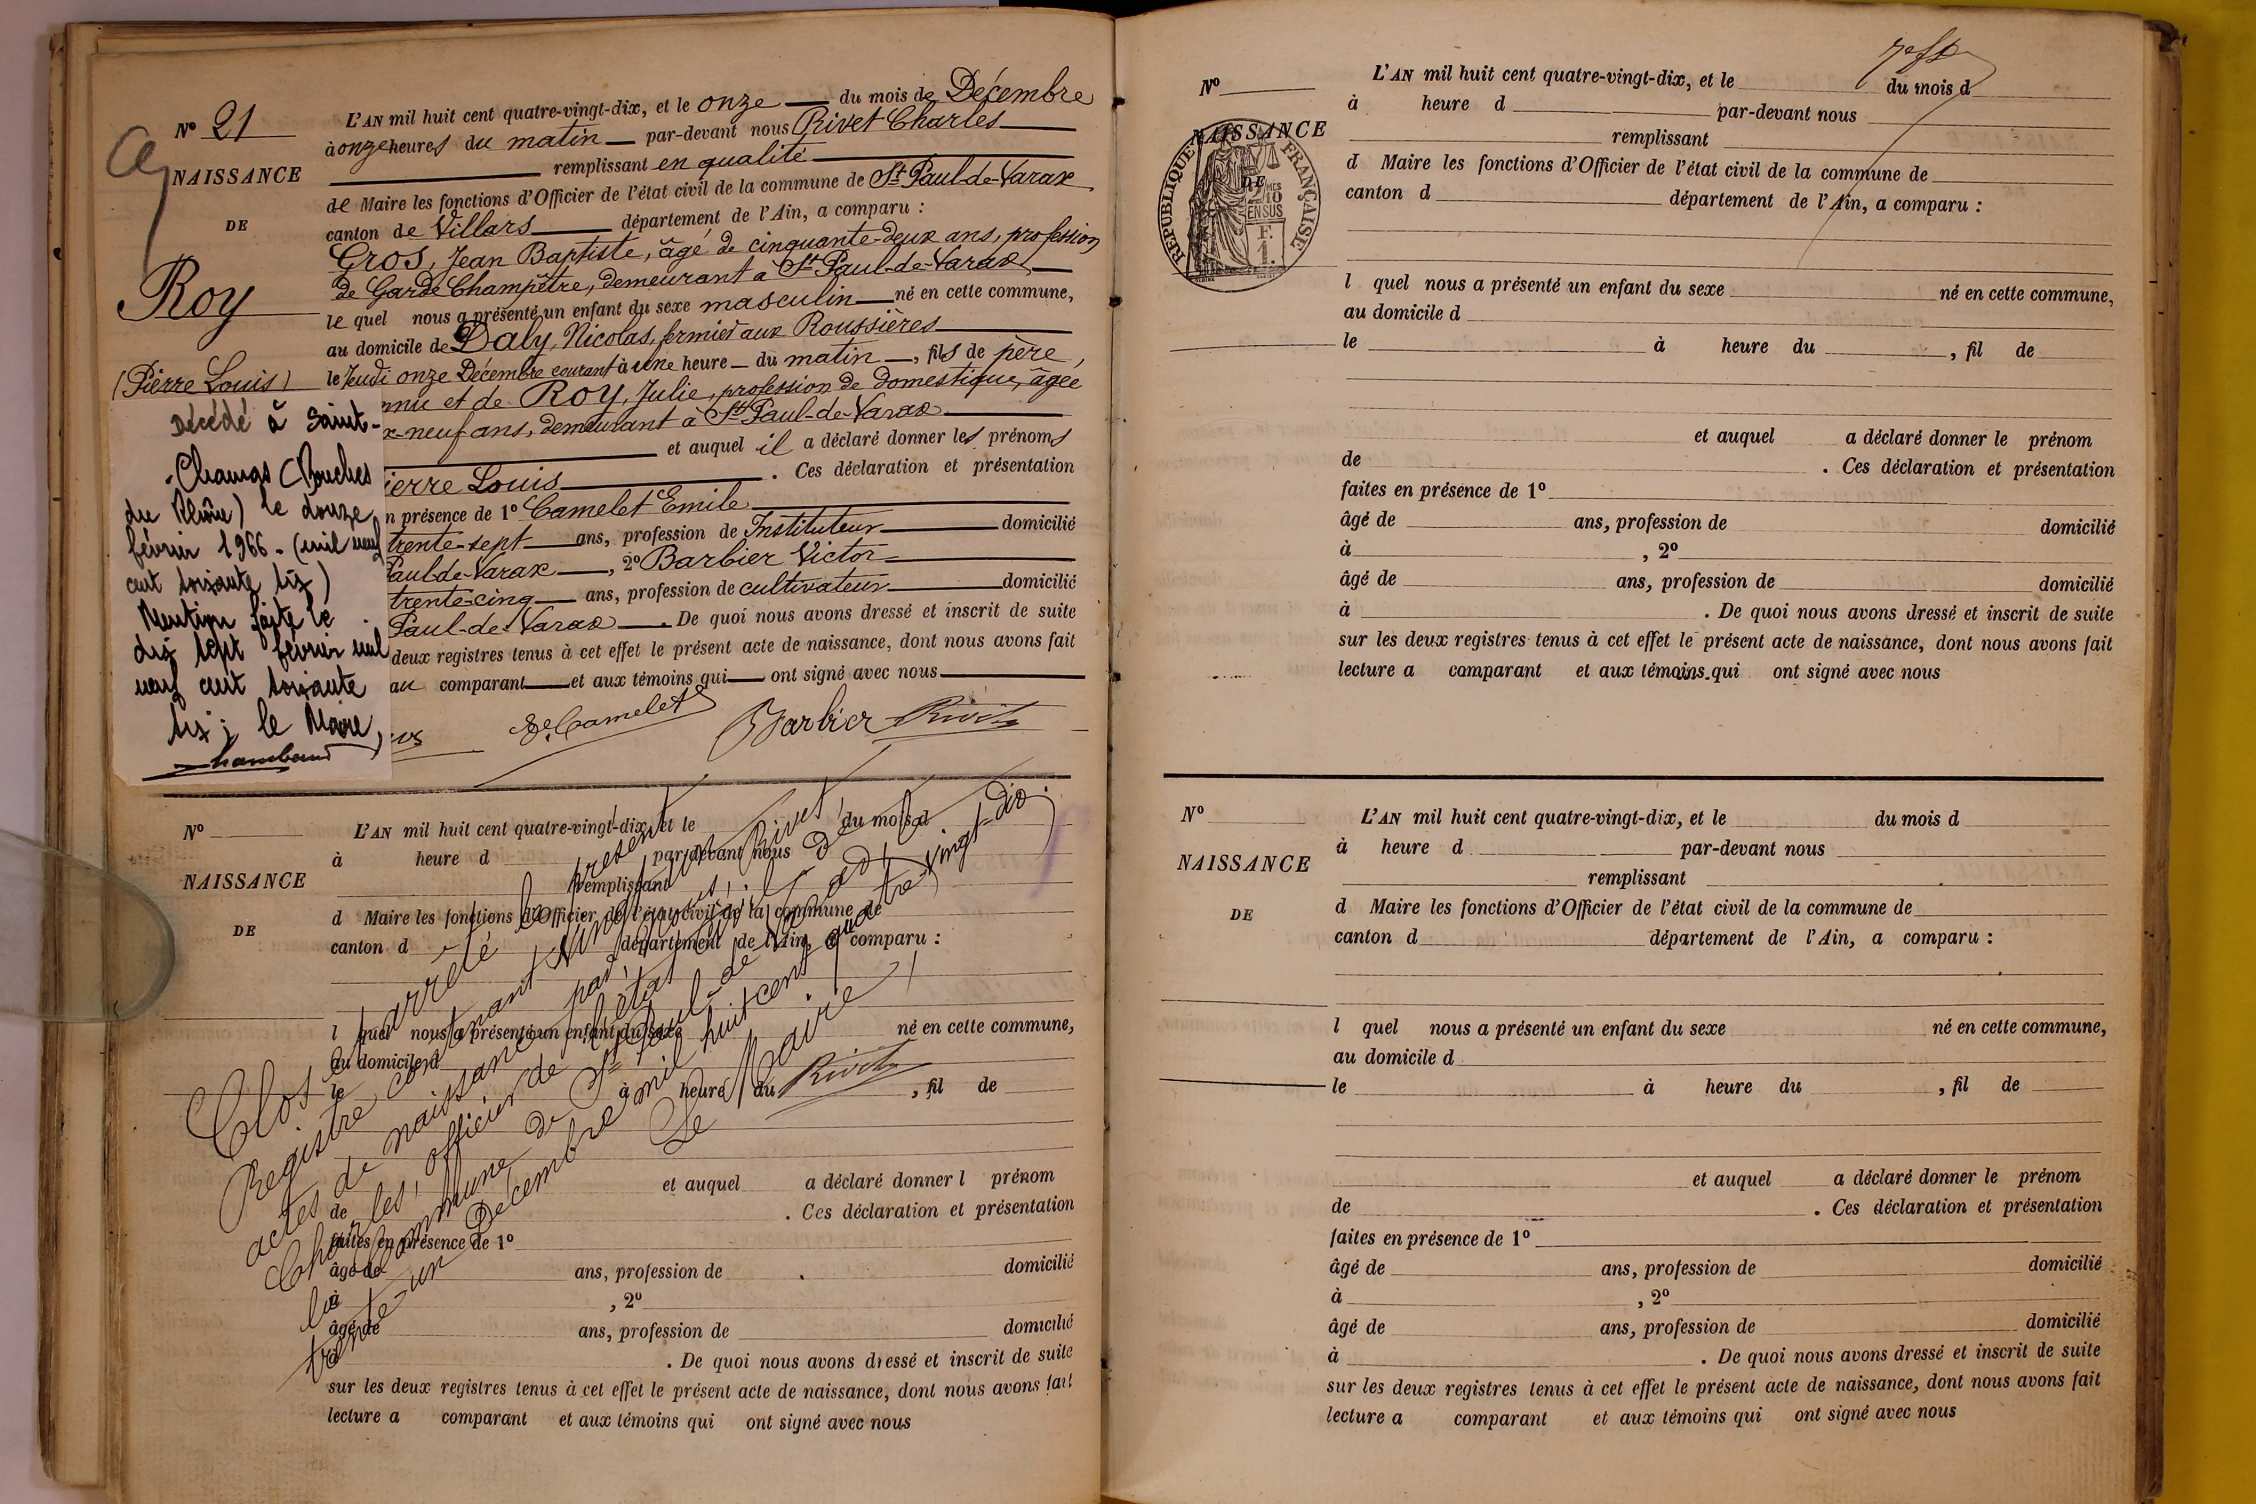 Nº 21
NAISSANCE
DE
Roy
(Pierre Louis)
L'AN mil huit cent quatre-vingt-dix, et le onze du mois de Décembre
à onze heures du matin par-devant nous Rivet Charles
remplissant en qualité
de Maire les fonctions d'Officier de l'état civil de la commune de St Paul-de-Varax
canton de Villars département de l'Ain, a comparu :
Gros, Jean Baptiste, âgé de cinquante-deux ans, profession
de Garde Champêtre, demeurant à St Paul-de-Varax
le quel nous a présenté un enfant du sexe masculin né en cette commune,
au domicile de Daly, Nicolas, fermier aux Roussières
le Jeudi onze Décembre courant à une heure du matin, fils de père
nnu et de ROY, Julie, profession de domestique, âgée
x-neuf ans, demeurant à St Paul-de-Varax
et auquel il a déclaré donner les prénoms
ierre Louis . Ces déclaration et présentation
n présence de 1º Camelet Emile
trente-sept ans, profession de Instituteur domicilié
Paul-de-Varax, 2º Barbier Victor
trente-cinq ans, profession de cultivateur domicilié
Paul-de-Varax. De quoi nous avons dressé et inscrit de suite
deux registres tenus à cet effet le présent acte de naissance, dont nous avons fait
au comparant et aux témoins qui ont signé avec nous
E. Camelet Barbier Rivet
Décédé à Saint-
-Chamas (Bouches
du Rhône) le douze
février 1966 - (mil neuf
cent soixante six)
Mention faite le
dix sept février mil
neuf cent soixante
six ; le Maire,
Chambaud
Nº
NAISSANCE
DE
L'AN mil huit cent quatre-vingt-dix, et le du mois d
à heure d par-devant nous
remplissant
d Maire les fonctions d'Officier de l'état civil de la commune de
canton d département de l'Ain, a comparu :
l quel nous a présenté un enfant du sexe né en cette commune,
au domicile d
le à heure du , fil de
et auquel a déclaré donner l prénom
de . Ces déclaration et présentation
faites en présence de 1º
âgé de ans, profession de domicilié
à , 2º
âgé de ans, profession de domicilié
à . De quoi nous avons dressé et inscrit de suite
sur les deux registres tenus à cet effet le présent acte de naissance, dont nous avons fait
lecture a comparant et aux témoins qui ont signé avec nous
Clos et arrêté le présent
Registre contenant vingt-un
actes de naissance par nous, Rivet
Charles, officier de l'état civil de
la Commune de St Paul-de-Varax, le
trente-un Décembre mil huit cent quatre-vingt-dix.
Le Maire,
Rivet
Nº
NAISSANCE
DE
RÉPUBLIQUE FRANÇAISE
2/10
EN SUS
F.
1.
L'AN mil huit cent quatre-vingt-dix, et le du mois d
à heure d par-devant nous
remplissant
d Maire les fonctions d'Officier de l'état civil de la commune de
canton d département de l'Ain, a comparu :
l quel nous a présenté un enfant du sexe né en cette commune,
au domicile d
le à heure du , fil de
et auquel a déclaré donner le prénom
de . Ces déclaration et présentation
faites en présence de 1º
âgé de ans, profession de domicilié
à , 2º
âgé de ans, profession de domicilié
à . De quoi nous avons dressé et inscrit de suite
sur les deux registres tenus à cet effet le présent acte de naissance, dont nous avons fait
lecture a comparant et aux témoins qui ont signé avec nous
Nº
NAISSANCE
DE
L'AN mil huit cent quatre-vingt-dix, et le du mois d
à heure d par-devant nous
remplissant
d Maire les fonctions d'Officier de l'état civil de la commune de
canton d département de l'Ain, a comparu :
l quel nous a présenté un enfant du sexe né en cette commune,
au domicile d
le à heure du , fil de
et auquel a déclaré donner le prénom
de . Ces déclaration et présentation
faites en présence de 1º
âgé de ans, profession de domicilié
à , 2º
âgé de ans, profession de domicilié
à . De quoi nous avons dressé et inscrit de suite
sur les deux registres tenus à cet effet le présent acte de naissance, dont nous avons fait
lecture a comparant et aux témoins qui ont signé avec nous